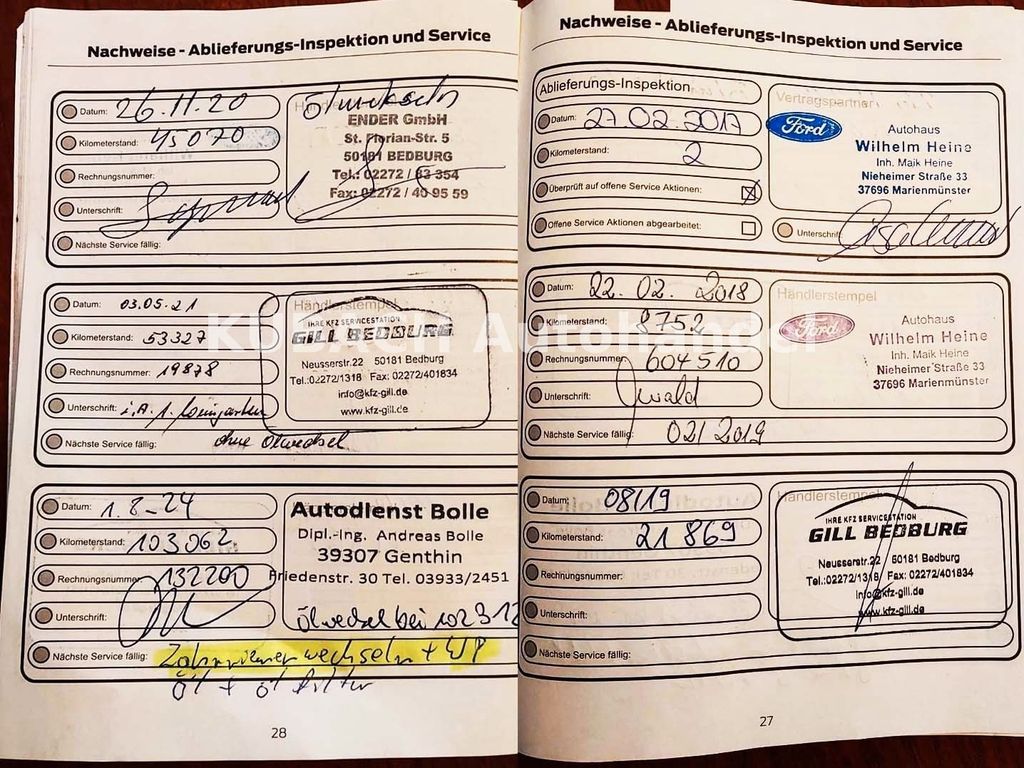 Nachweise - Ablieferungs-Inspektion und Service
Datum: 26.11.20
Kilometerstand: 45070
Rechnungsnummer:
Unterschrift:
Nächste Service fällig:
Ölwechseln
ENDER GmbH
St. Florian-Str. 5
50181 BEDBURG
Tel.: 02272 / 83 354
Fax: 02272 / 40 95 59
Datum: 03.05.21
Kilometerstand: 53327
Rechnungsnummer: 19878
Unterschrift: i.A.
Nächste Service fällig: ohne Ölwechsel
Händlerstempel
IHRE KFZ SERVICESTATION
GILL BEDBURG
Neusserstr.22 50181 Bedburg
Tel.:02272/1318 Fax: 02272/401834
info@kfz-gill.de
www.kfz-gill.de
Datum: 1.8-24
Kilometerstand: 103062
Rechnungsnummer: 132200
Unterschrift:
Nächste Service fällig: Zahnriemen wechseln + WP
Öl + Ölfilter
Autodienst Bolle
Dipl.-Ing. Andreas Bolle
39307 Genthin
Friedenstr. 30 Tel. 03933/2451
Ölwechsel bei 102312
28
Nachweise - Ablieferungs-Inspektion und Service
Ablieferungs-Inspektion
Datum: 27.02.2017
Kilometerstand: 2
Überprüft auf offene Service Aktionen:
Offene Service Aktionen abgearbeitet:
Vertragspartner
Ford
Autohaus
Wilhelm Heine
Inh. Maik Heine
Nieheimer Straße 33
37696 Marienmünster
Unterschrift:
Datum: 22.02.2018
Kilometerstand: 8752
Rechnungsnummer: 604510
Unterschrift:
Nächste Service fällig: 02/2019
Händlerstempel
Ford
Autohaus
Wilhelm Heine
Inh. Maik Heine
Nieheimer Straße 33
37696 Marienmünster
Datum: 08/19
Kilometerstand: 21869
Rechnungsnummer:
Unterschrift:
Nächste Service fällig:
Händlerstempel
IHRE KFZ SERVICESTATION
GILL BEDBURG
Neusserstr.22 50181 Bedburg
Tel.:02272/1318 Fax: 02272/401834
info@kfz-gill.de
www.kfz-gill.de
27
Autohandel